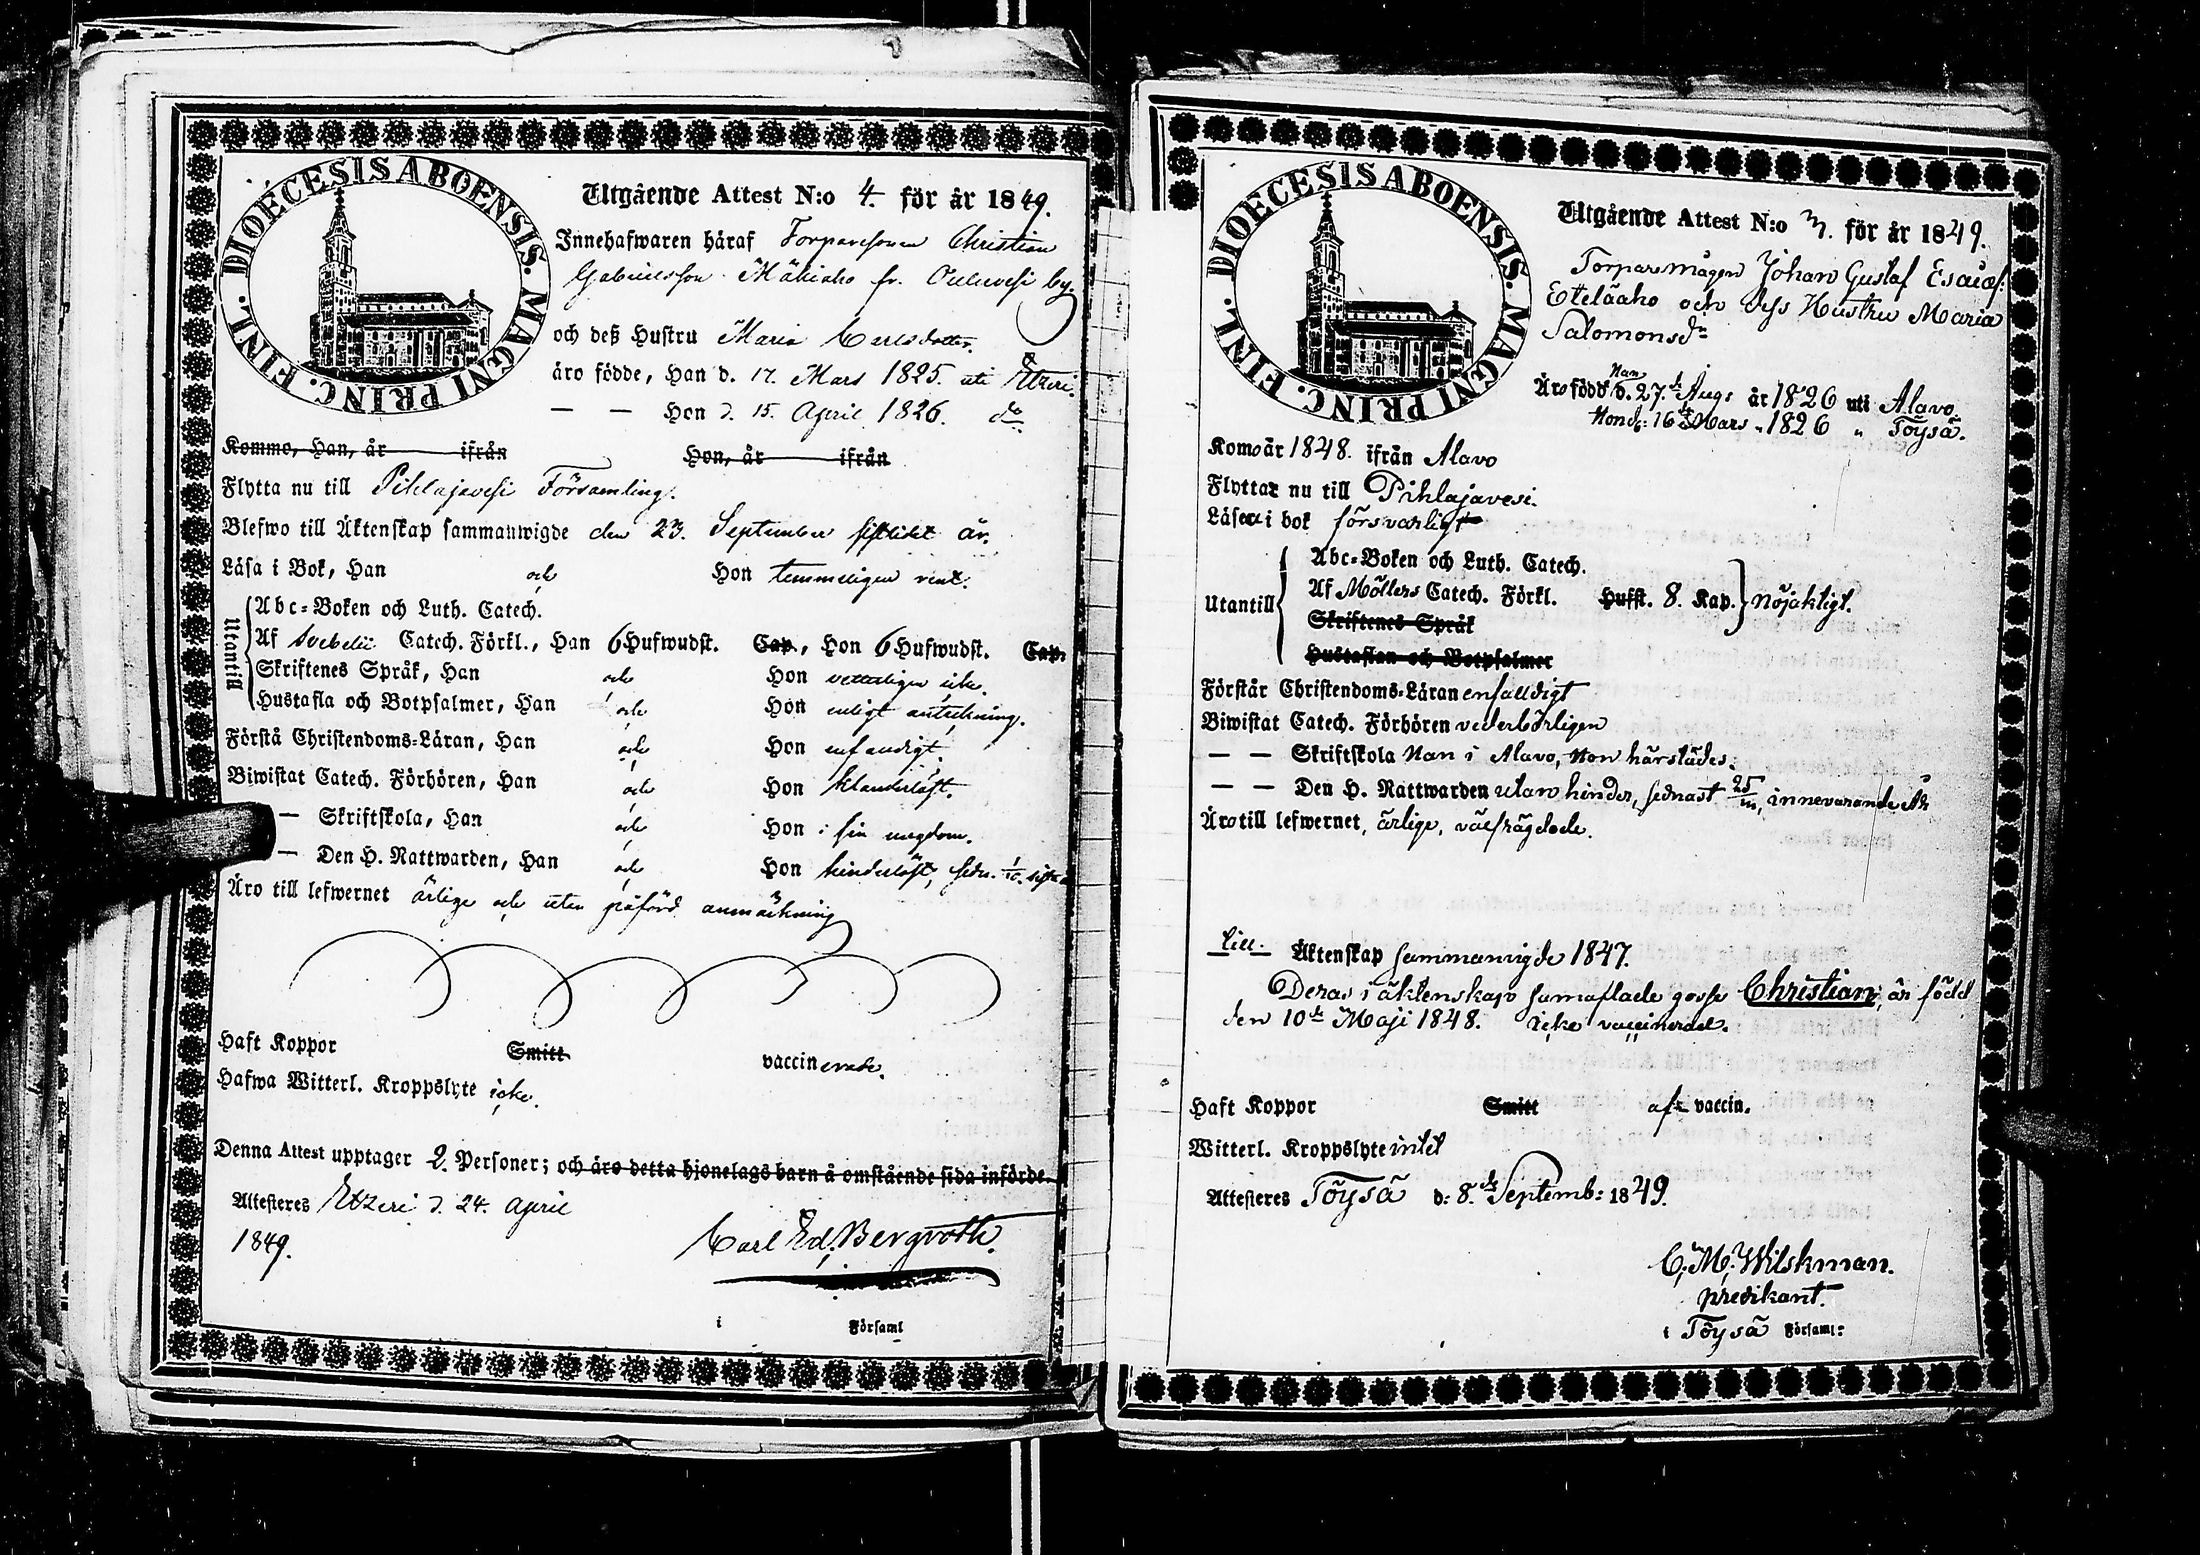 DIOECESIS ABOENSIS. MAGNI PRINC. FINL.
Utgående Attest N:o 4. för år 1849.
Innehafwaren häraf Torparesonen Christian
Gabrielsson Mäkiaho fr. by
och deß Hustru Maria Carlsdotter.
äro födde, Han d. 17. Mars 1825. uti Etzeri.
— — Hon d. 15. April 1826. do
Komme, Han, år ifrån Hon, år ifrån
Flytta nu till Pihlajavesi Församling.
Blefwo till Äktenskap sammanwigde den 23. September sistledet år.
Läsa i Bok, Han och Hon temmeligen rent.
Utantill
Abc-Boken och Luth. Catech.
Af Svebelii Catech. Förkl., Han 6 Hufwudst. Cap., Hon 6 Hufwudst. Cap.
Skriftenes Språk, Han och Hon icke.
Hustafla och Botpsalmer, Han och Hon enligt anteckning.
Förstå Christendoms-Läran, Han och Hon enfaldigt.
Biwistat Catech. Förhören, Han och Hon klanderlöst.
— Skriftskola, Han och Hon i sin ungdom.
— Den H. Nattwarden, Han och Hon hinderlöst, sedn. 1/10.
Äro till lefwernet ärlige och utan påförd anmärkning
Haft Koppor Smitt vaccinerade.
Hafwa Witterl. Kroppslyte icke.
Denna Attest upptager 2. Personer; och äro detta hjonelags barn å omstående sida införde.
Attesteres Etzeri d. 24. April
1849.
Carl Ed. Bergroth.
i Församl
DIOECESIS ABOENSIS. MAGNI PRINC. FINL.
Utgående Attest N:o 3. för år 1849.
Torparemågen Johan Gustaf Esaiæs.
Eteläaho och dess Hustru Maria
Salomonsdr
Äro född Han d. 27de Augs år 1826 uti Alavo.
Hon d: 16de Mars " 1826 " Töysä.
Komo år 1848. ifrån Alavo
Flyttar nu till Pihlajavesi.
Läsa i bok försvarligt
Utantill
Abc-Boken och Luth. Catech.
Af Möllers Catech. Förkl. Hufst. 8. Kap. nöjaktigt.
Skriftenes Språk
Hustaflan och Botpsalmer
Förstår Christendoms-Läran enfalldigt
Biwistat Catech. Förhören vederbörligen
— — Skriftskola Han i Alavo, Hon härstädes.
— — Den H. Nattwarden utan hinder, sednast 25/m, innevarande År
Äro till lefwernet, ärlige, välfrägdade.
till Äktenskap sammanvigde 1847.
Deras i äktenskap samaflade gosse Christian, är född
den 10de Maji 1848. icke vaccinerad.
Haft Koppor Smitt af vaccin.
Witterl. Kroppslyte intet
Attesteres Töysä d: 8.de Septemb: 1849.
C. M. Wilskman.
predikant.
i Töysä Församl: